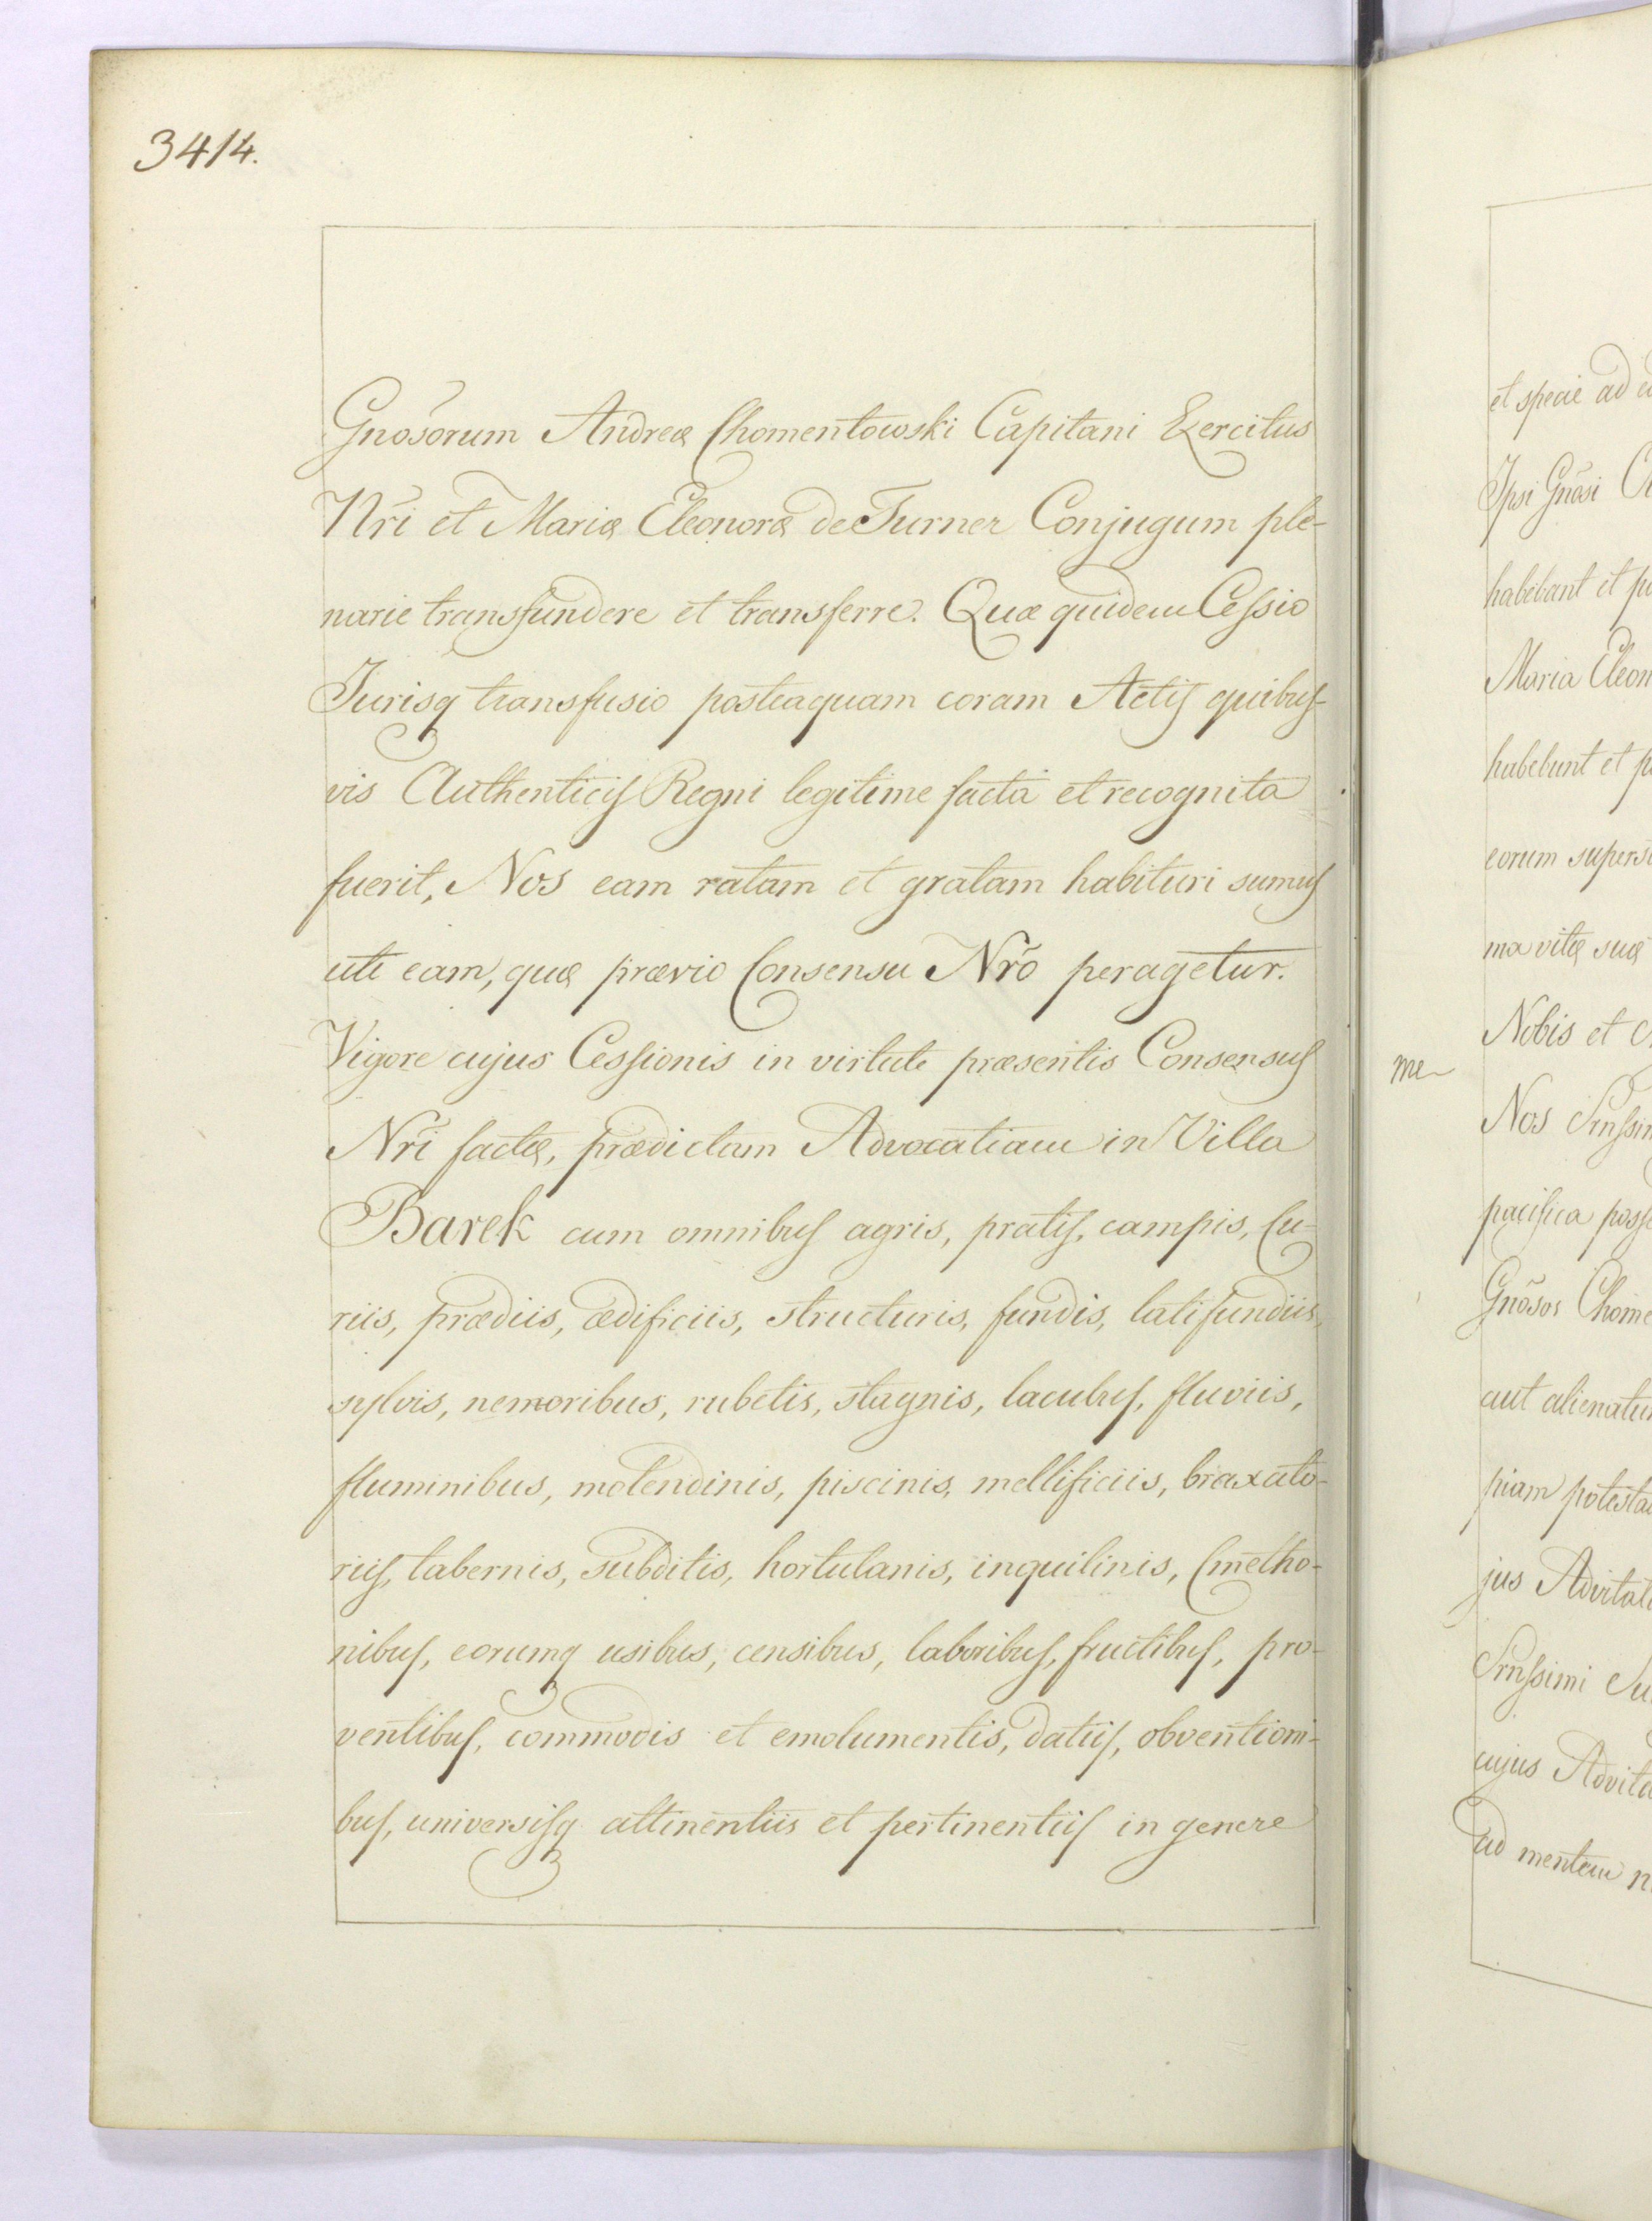 3414.
Gnõsorum Andreæ Chomentowski Capitani Exercitus
Nr̃i et Mariæ Eleonoræ de Turner Conjugum ple-
narie transfundere et transferre. Quæ quidem Cessio
Jurisq transfusio posteaquam coram Actis quibus-
vis Authenticis Regni legitime facta et recognita
fuerit, Nos eam ratam et gratam habituri sumus
uti eam, quæ prævio Consensu Nr̃o peragetur.
Vigore cujus Cessionis in virtute præsentis Consensus
Nr̃i factæ, prædictam Advocatiam in Villa
Barek cum omnibus agris, pratis, campis, Cu-
riis, prædiis, ædificiis, structuris, fundis, latifundiis,
sylvis, nemoribus, rubetis, stagnis, lacubus, fluviis,
fluminibus, molendinis, piscinis, mellificiis, braxato-
riis, tabernis, subditis, hortulanis, inquilinis, Cmetho-
nibus, eorumq usibus, censibus, laboribus, fructibus, pro-
ventibus, commodis et emolumentis, datiis, obventioni-
bus, universisq attinentiis et pertinentiis in genere
et specie ad
Ipsi Gnõsi
habebant et
Maria Eleon
habebunt et
eorum supers
ma vitæ suæ
Nobis et
me
Nos Srnssim
pacifica poss
Gnõsos Chome
aut alienatu
piam potesta
jus Advitali
Srnssimi Su
cujus Advita
ad mentem n